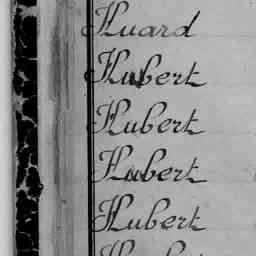 Huard
Hubert
Hubert
Hubert
Hubert